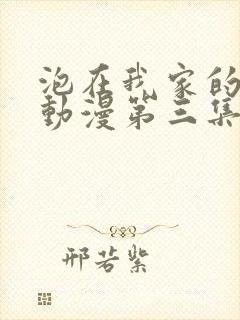 泡在我家的
動漫第三集
邢若紫